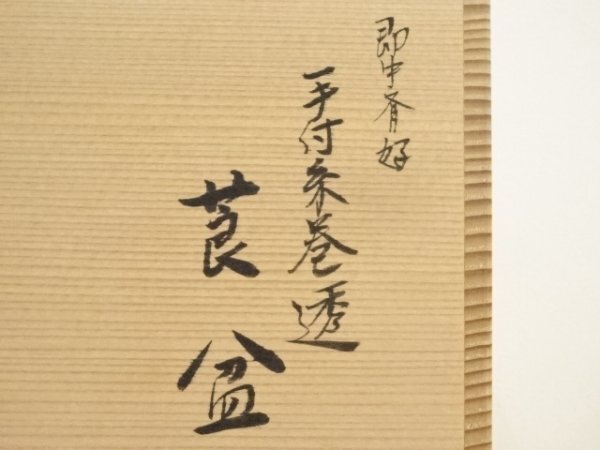 即中斉好
手付糸巻透
莨盆